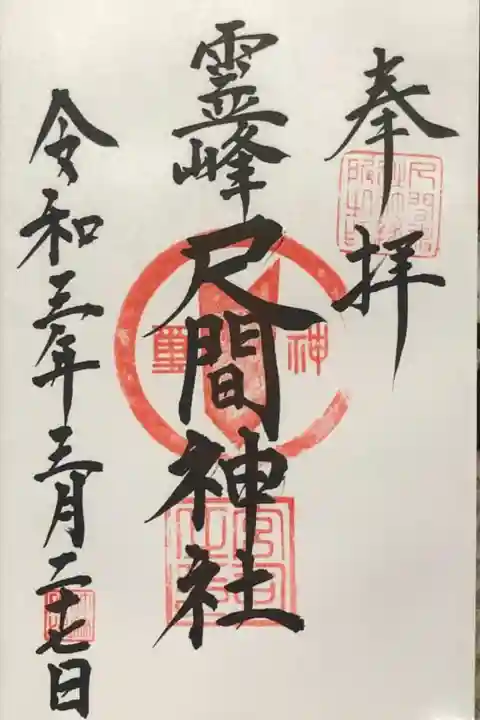 奉拝
霊峰 尺間神社
神璽
令和三年三月二十七日